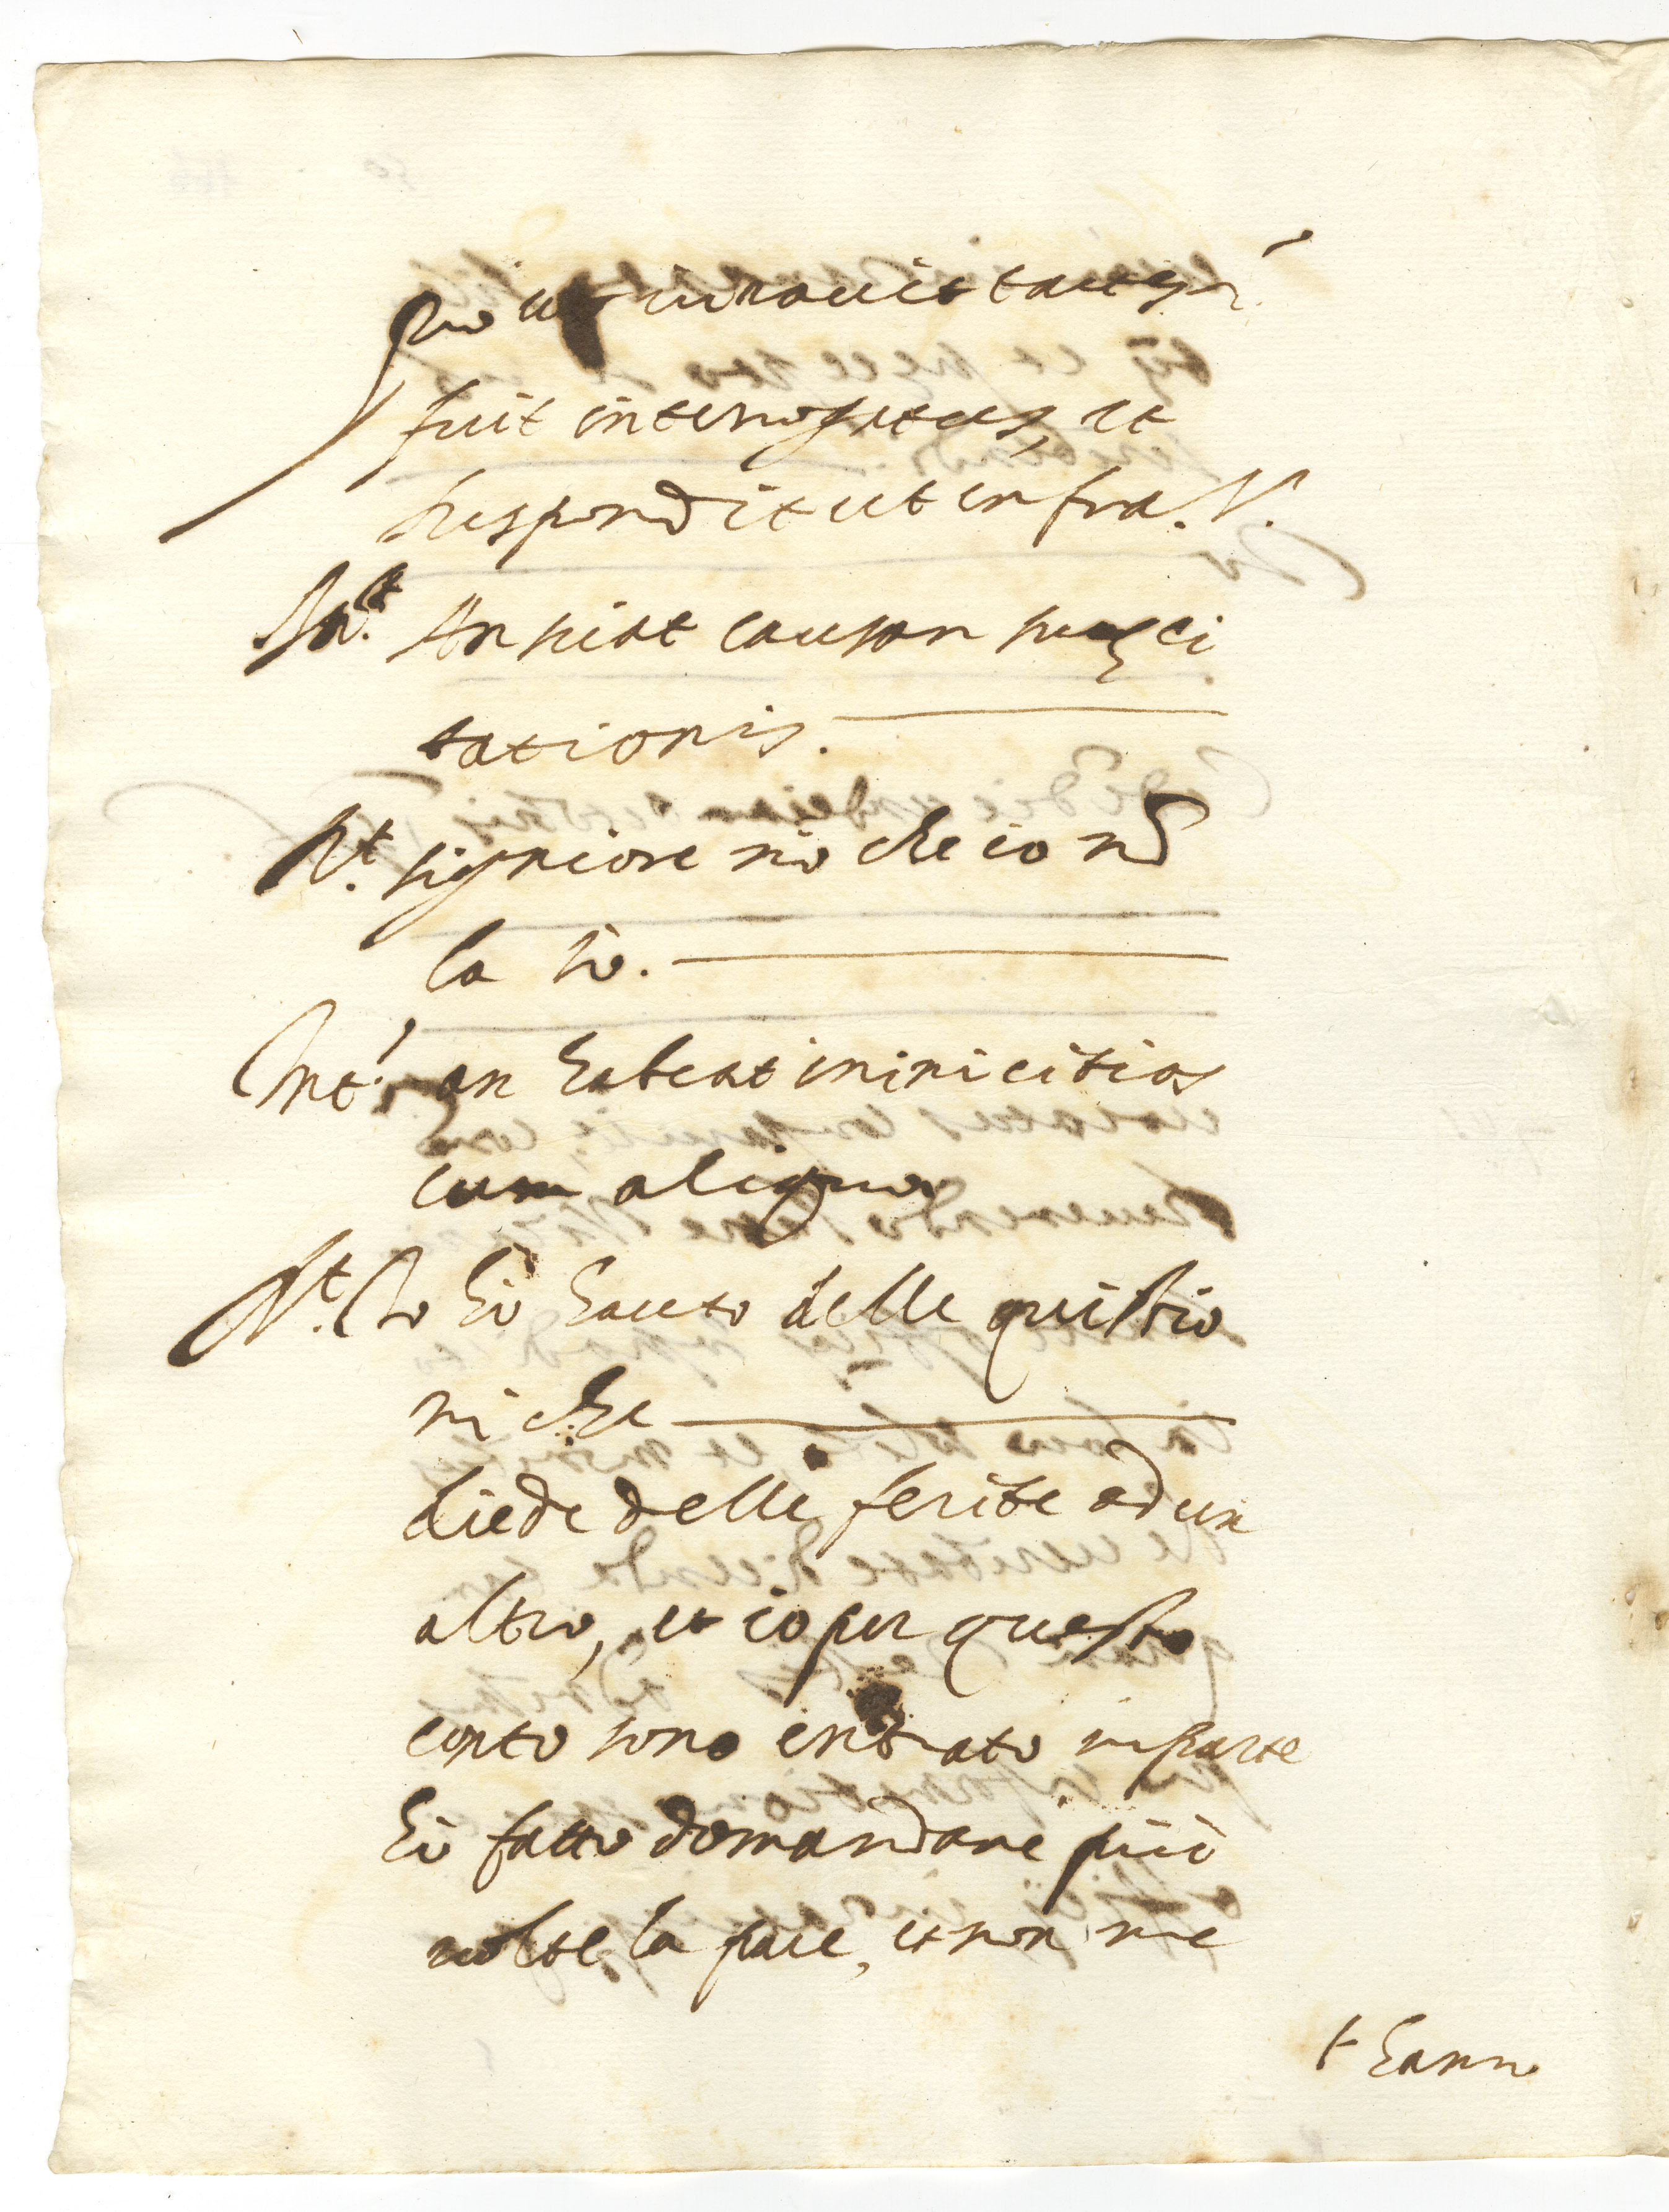 Qui iuravit tactis
fuit interrogatus, et
respondit ut infra. V.
Int. An sciat causam suę ci
tationis.
Rt. signiore nò che io nō
la sò.
Int. an habeat inimicitias
cum aliquo
Rt. Io hò hauuto delle quistio
ni che
diede delle ferite ad un
altro, et io per questo
conto sono entrato in parte
hò fatto domandare più
volte la pace, et non me
l hann